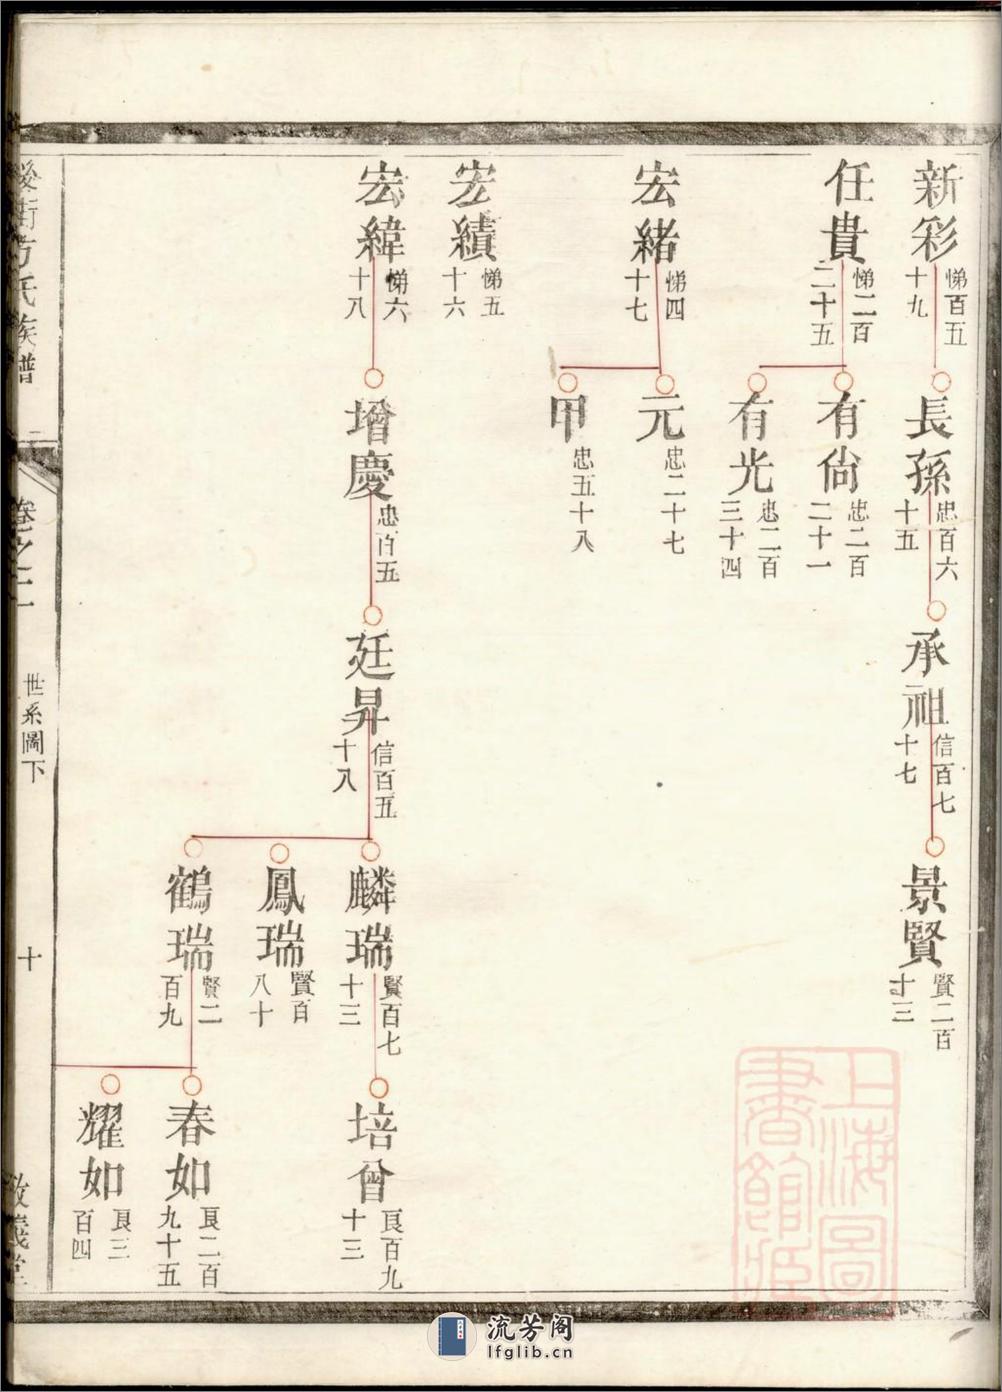 新彩
悌百五
十九
長孫
忠百六
十五
承祖
信百七
十七
景賢
賢二百
十三
任貴
悌二百
二十五
有尙
忠二百
二十一
有光
忠二百
三十四
宏緒
悌四
十七
元
忠二十七
甲
忠五十八
宏績
悌五
十六
宏緯
悌六
十八
增慶
忠百五
廷昇
信百五
十八
麟瑞
賢百七
十三
培曾
良百九
十三
鳳瑞
賢百
八十
鶴瑞
賢二
百九
春如
良二百
九十五
耀如
良三
百四
方氏族譜
卷之二
世系圖下
十
敘義堂
上海圖
書館藏
流芳阁
lfglib.cn